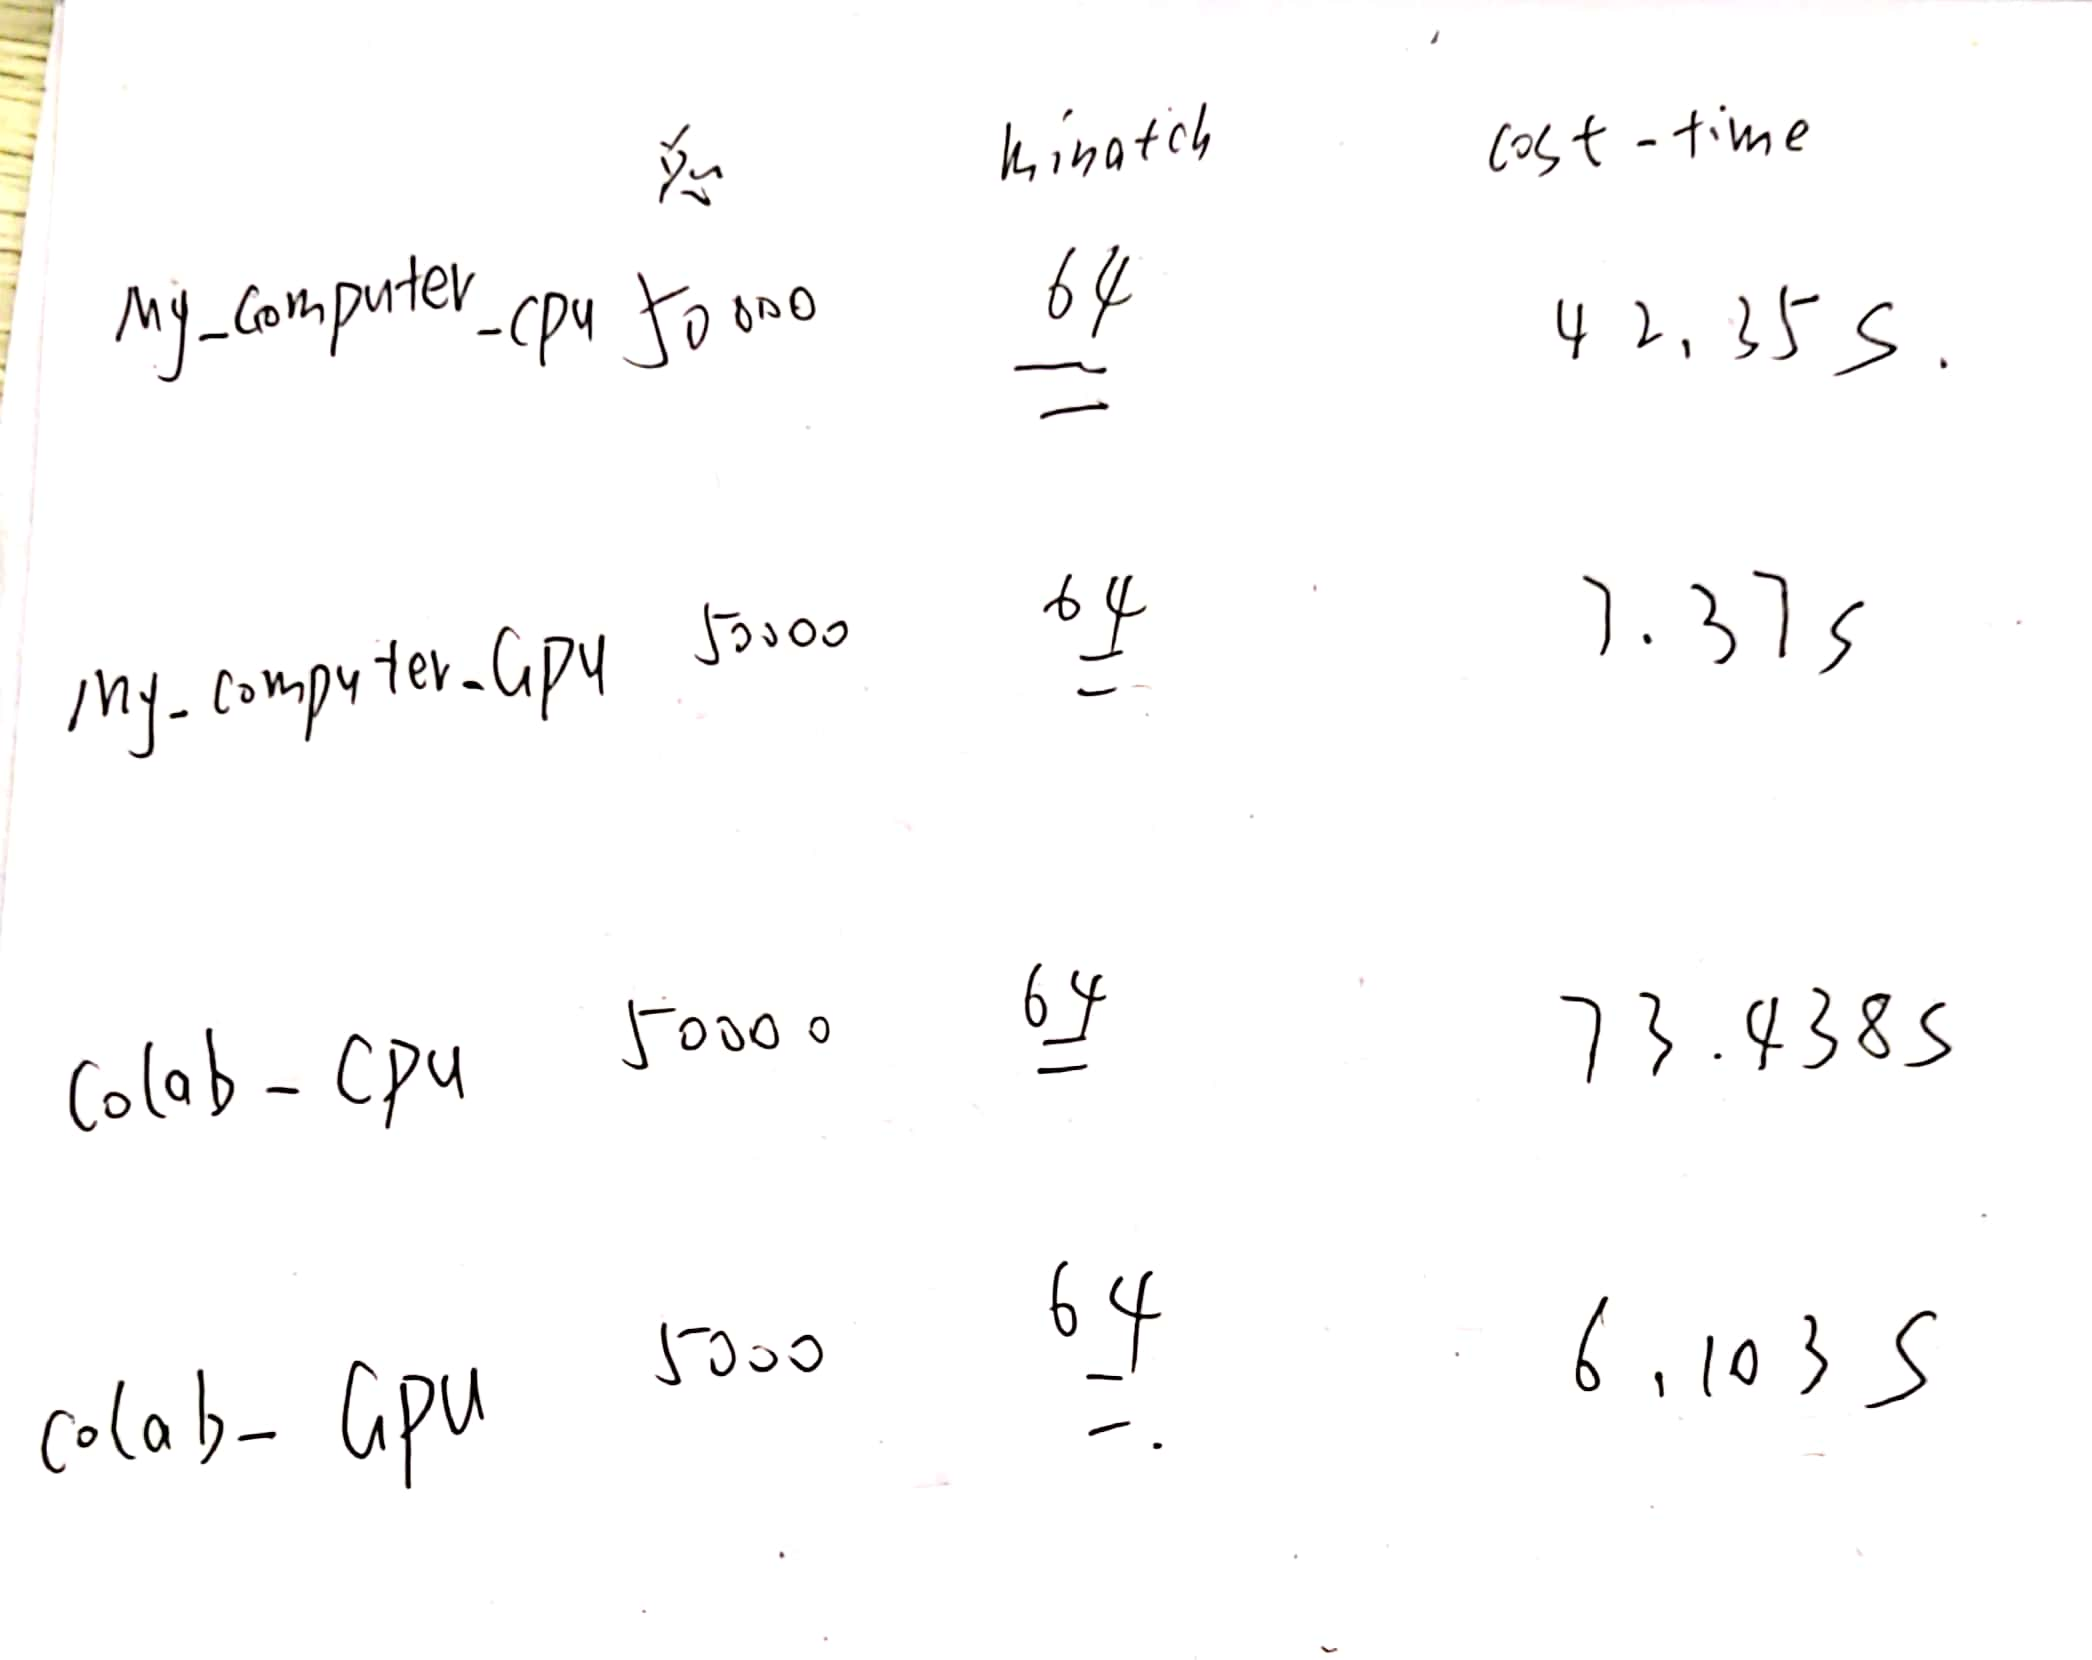 minatch cost-time
My_Computer_cpu 50000 64 42.35s.
my-computer-Gpu 50000 64 7.37s
Colab-CPU 50000 64 73.438s
Colab-GPU 5000 64 6.103s